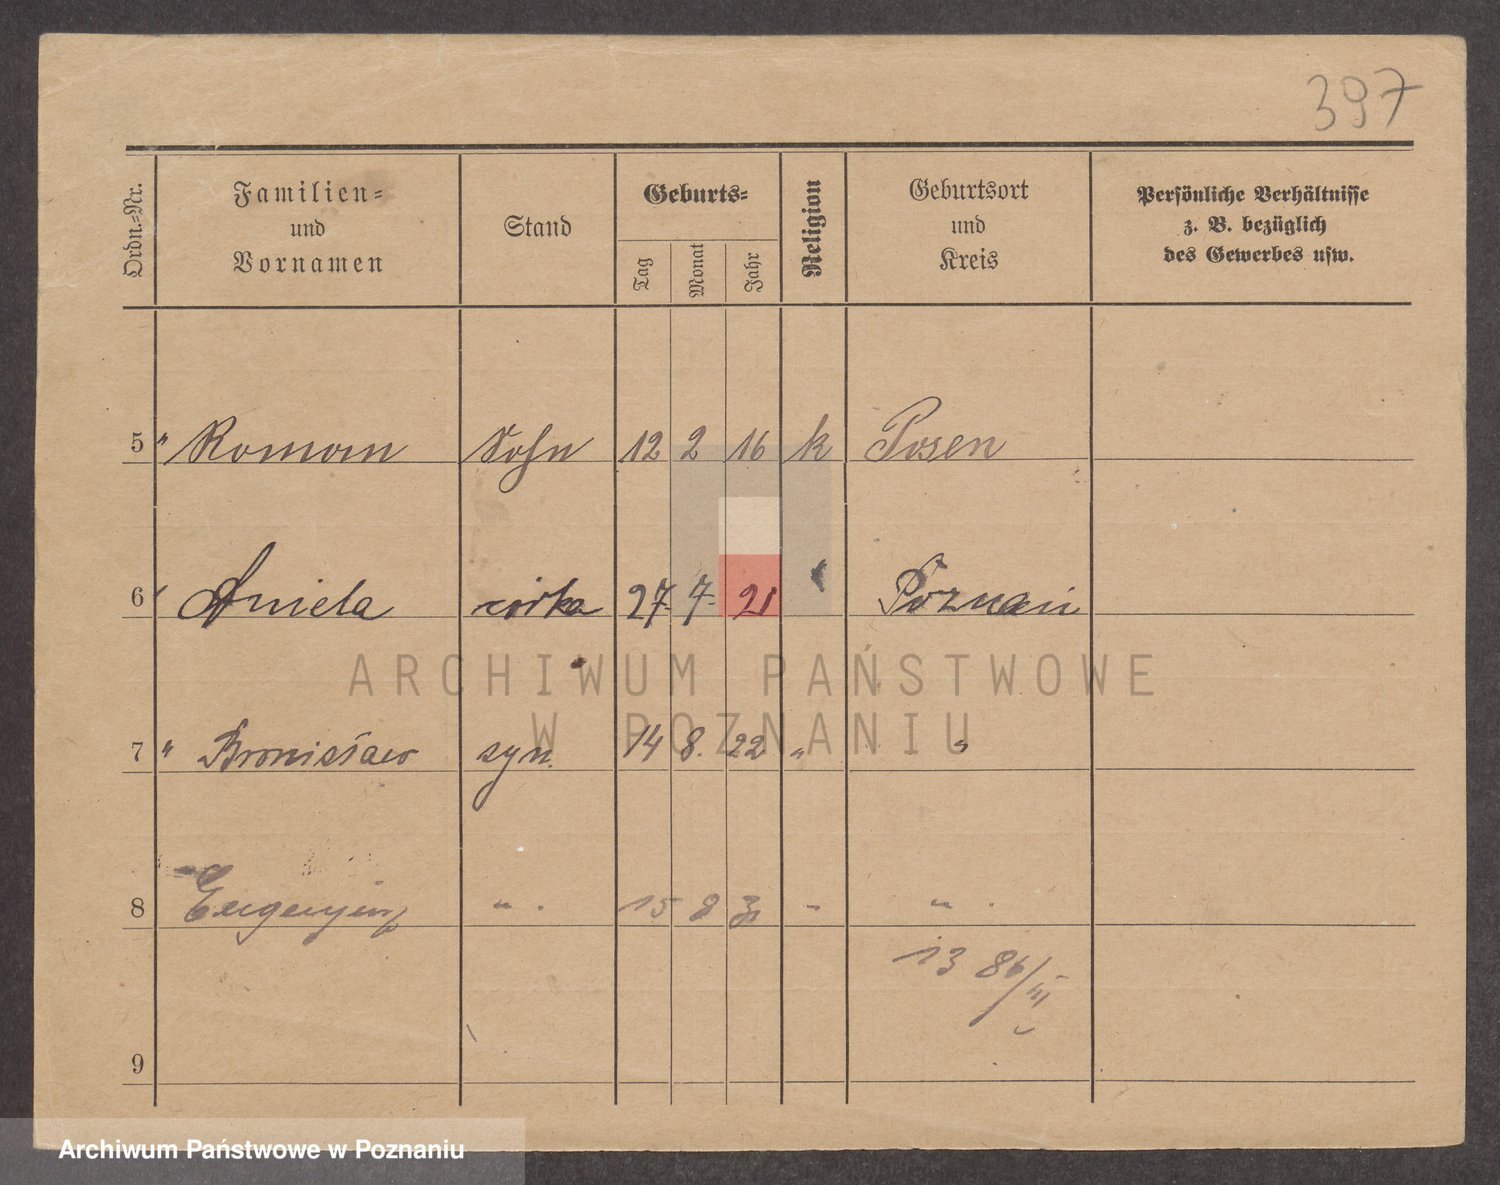 397
Ordn.-Nr.
Familien-
und
Vornamen
Stand
Geburts-
Tag
Monat
Jahr
Religion
Geburtsort
und
Kreis
Persönliche Verhältnisse
z. B. bezüglich
des Gewerbes usw.
5 " Roman Sohn 12 2 16 k Posen
6 Aniela córka 27 7 21 Poznań
ARCHIWUM PAŃSTWOWE
W POZNANIU
7 " Bronisław syn. 14 8. 22 " "
8 Eugenjusz " . 15 8 " " .
13 86/III
9
Archiwum Państwowe w Poznaniu